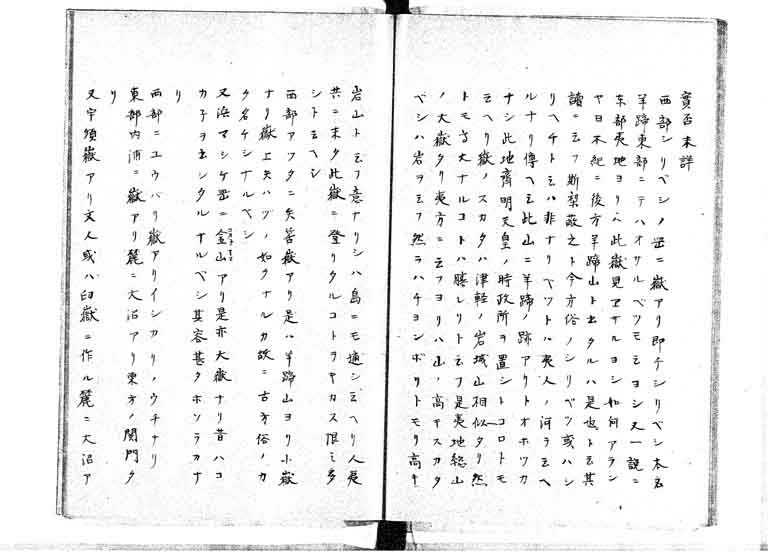 實否未詳
西部シリベシノ岊ニ嶽アリ即チシリベシ本名
羊蹄東部ニテハオサルベツモエヨシ又一説ニ
东部夷地ヨリハ此嶽見エナルヨシ如何アラン
ヤ日本紀ニ後方羊蹄山ト出タルハ是也ト云其
讀ニ云フ斯梨蔽之ト今方俗ノシリベツ或ハシ
リヘチトミハ非ナリベツトハ夷人ノ河ヲ云ヘ
ルナリ傳ヘ云此山ニ羊蹄ノ跡アリトオホツカ
ナシ此地齊明天皇ノ時政所ヲ置シトコロトモ
云ヘリ嶽ノスカタハ津軽ノ岩城山相似タリ然
トモ高大ナルコトハ勝レリト云フ是夷地総山
ノ大嶽タリ夷方ニ云フヨリハ山ノ高ヤスカタ
ベシハ岩ヲ云フ然ラハチヨンボリトモリ高キ
岩山ト云フ意ナリシハ島ニモ通シ云ヘリ人夷
共ニ未タ此嶽ニ登リタルコトヲヤカス限ミ多
シト云ヘシ
西部アフタニ矢筈嶽アリ是ハ羊蹄山ヨリ小嶽
ナリ嶽上矢ハヅノ如クナルカ故ニ古方俗ノカ
ク名ケシナルベシ
又浜マシケ岊ニ金山アリ是亦大嶽ナリ昔ハコ
カ子ヲ出シタルナルベシ其容甚タホソラカナ
リ
西部ニユウバリ嶽アリイシカリノウチナリ
東部内浦ニ嶽アリ麓ニ大沼アリ東方ノ関門タ
リ
又宇須嶽アリ文人或ハ臼嶽ニ作ル麓ニ大沼ア